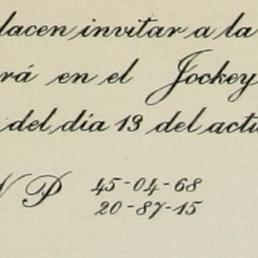 placen invitar a la
rá en el Jockey
del día 13 del actu
P 45-04-68
20-87-15